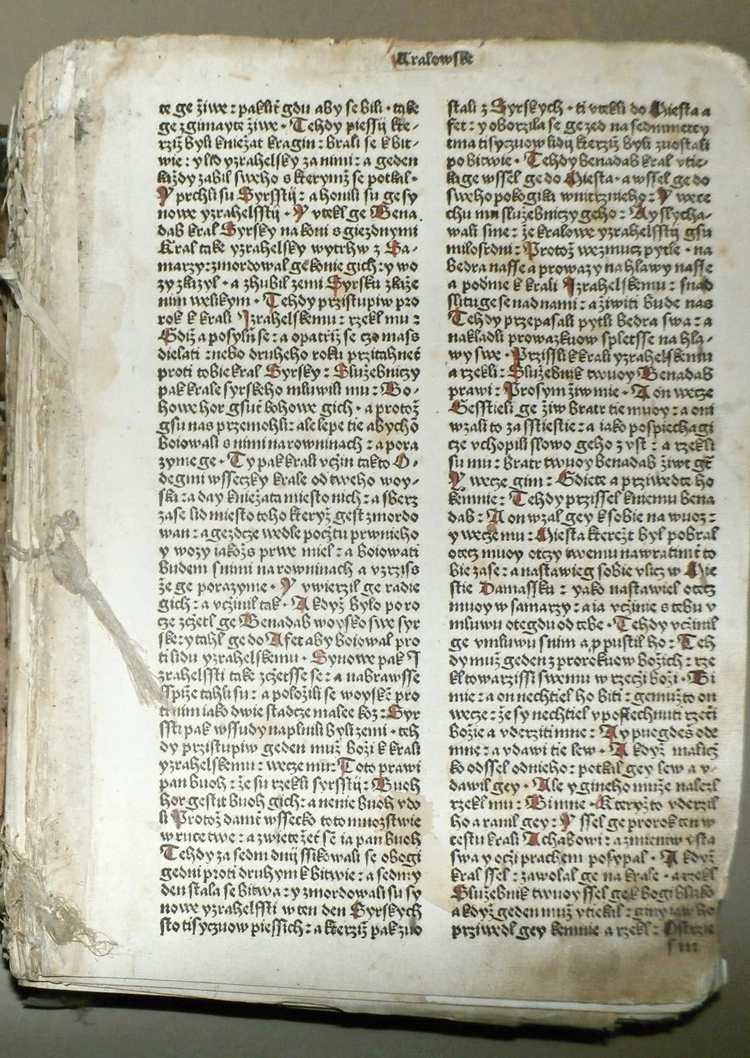 Kralowske
te ge žiwe : pakliť gdu aby se bili · take
ge zgimayte žiwe · Tehdy piessij kte-
rziž byli kniežat kragin : brali se k bit-
wie : y lid yzrahelsky za nimi : a geden
každy zabil sweho s kterymž se potkal ·
Y prchli su Syrsstij : a honili su ge sy
nowe yzrahelsstij · Y vtekl ge Bena
dab kral Syrsky na koni s giezdnymi
Kral take yzrahelsky wytrhw z Sa-
marzy : zmordowal ge konie gich : y wo
zy zkazyl · a zhubil zemi Syrsku zkaze
nim welikym · Tehdy przistupiw pro
rok k krali Izrahelskemu : rzekl mu :
Gdiž a posylň se : a opatřiž se czo mass
dielati : nebo druheho roku przitahneť
proti tobie kral Syrsky : Služebniczy
pak krale syrskeho mluwili mu : Bo-
howe hor gsuť bohowe gich · a protož
gsu nas przemohli : ale lepe tie abychō
boiowali s nimi na rowninach : a pora
zyme ge · Ty pak krali vczin takto O-
degmi wsseczky krale od tweho woy-
ska : a day kniežata miesto nich : a sberz
zase lid miesto toho kteryž gest zmordo
wan : a gezdcze wedle pocztu prwnieho
y wozy iakožs prwe miel : a boiowati
budem s nimi na rowninach a vzrziss
že ge porazyme · Y vwierzil ge radie
gich : a vczinil tak · A když bylo po ro
cze zczetl ge Benadab woysko swe syr
ske : y tahl ge do Afet aby boiowal pro
ti lidu yzrahelskemu · Synowe pak I
zrahelssti take zczetsse se : a nabrawsse
sspiže tahli su : a položili se woyskē pro
ti nim iako dwie stadcze malee koz : Syr
ssti pak wssudy naplnili byli zemi · teh
dy przistupiw geden muž boži k krali
yzrahelskemu : wecze mu : Toto prawi
pan buoh : že su rzekli syrsstij : Buoh
hor gestiť buoh gich : a nenie buoh vdo
li Protož damť wssecko toto množstwie
w ruce twe : a zwieteť že sē ia pan buoh
Tehdy za sedm dnij ssikowali se obogi
gedni proti druhym k bitwie : a sedmy
den stala se bitwa : y zmordowali su sy
nowe yzrahelssti w ten den Syrskych
sto tisyczuow piessich : a kterziž pak zuo
stali z Syrskych · ti vtekli do Miesta a
fet : y oborzila se ge zed na sedmmeczy
tma tisyczuow lidij kterziž byli zuostali
po bitwie · Tehdy benadab kral vtie-
kage wssel ge do Miesta · a wssel ge do
sweho pokogika wnitrznieho : Y wece
chu mu služebniczy geho : Ay slycha-
wali sme : že kralowe yzrahelsstij gsu
milosrdni : Protož wezmucz pytle · na
bedra nasse a prowazy na hlawy nasse
a podme k krali Izrahelskemu : snad
slituge se nad nami : a žiwiti bude nas
Tehdy przepasali pytli bedra swa : a
nakladli prowazkuow spletsse na hla-
wy swe · Przissli k krali yzrahelskemu
a rzekli : Služebnik twuoy Benadab
prawi : Prosym žiw mie · A on wecze
Gesstieli ge žiw bratr tie muoy : a oni
wzali to za sstiestie : a iako pospiechagi
cze vchopili slowo geho z vst : a rzekli
su mu : bratr twuoy benadab žiwť gť
Y wecze gim : Gdiete a przywedte ho
kemnie : Tehdy przissel k niemu bena
dab : A on wzal gey k sobie na wuoz :
y wecze mu : Miesta kterežť byl pobral
otecz muoy otczy twemu nawratimť to
bie zase : a nastawieg sobie vlicz w Mie
stie Damassku : yako nastawiel otecz
muoy w samarzy : a ia vczinie s tebu v
mluwu otegdu od tebe · Tehdy vczinil
ge vmluwu s nim a ppustil ho : Teh
dy muž geden z prorokuow božich : rze
kl towarzissi swemu w rzeczi boži · Bi
mie : a on nechtiel ho biti : gemužto on
wecze : že sy nechtiel vposlechnuti rzeči
božie a vderziti mne : Ay puogdeš ode
mne : a vdawi tie lew · A když maličz
ko odssel od nieho : potkal gey lew a v-
dawil gey · Ale y gineho muže nalezl
rzekl mu : Bi mne · Kteryžto vderzil
ho a ranil gey : Y ssel ge prorok tam w
cestu krali Achabowi : a zmienw vsta
swa y oczi prachem posypal · A když
kral ssel : zawolal ge na krale · a rzekl
Služebnik twuoy ssel gek bogi blizko
a když geden muž vtiekl : giny ho
prziwedl gey kemnie a rzekl : Ostrzie
f iii